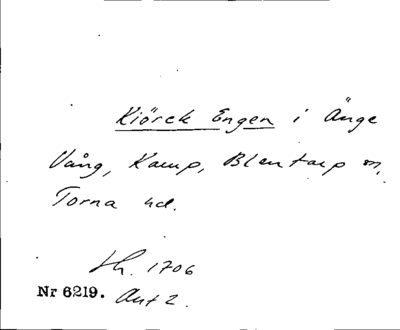 Kiörck Engen i Änge
Vång, Kamp, Blentarp sn,
Torna hd.
Lh. 1706
Nr 6219. Akt 2.